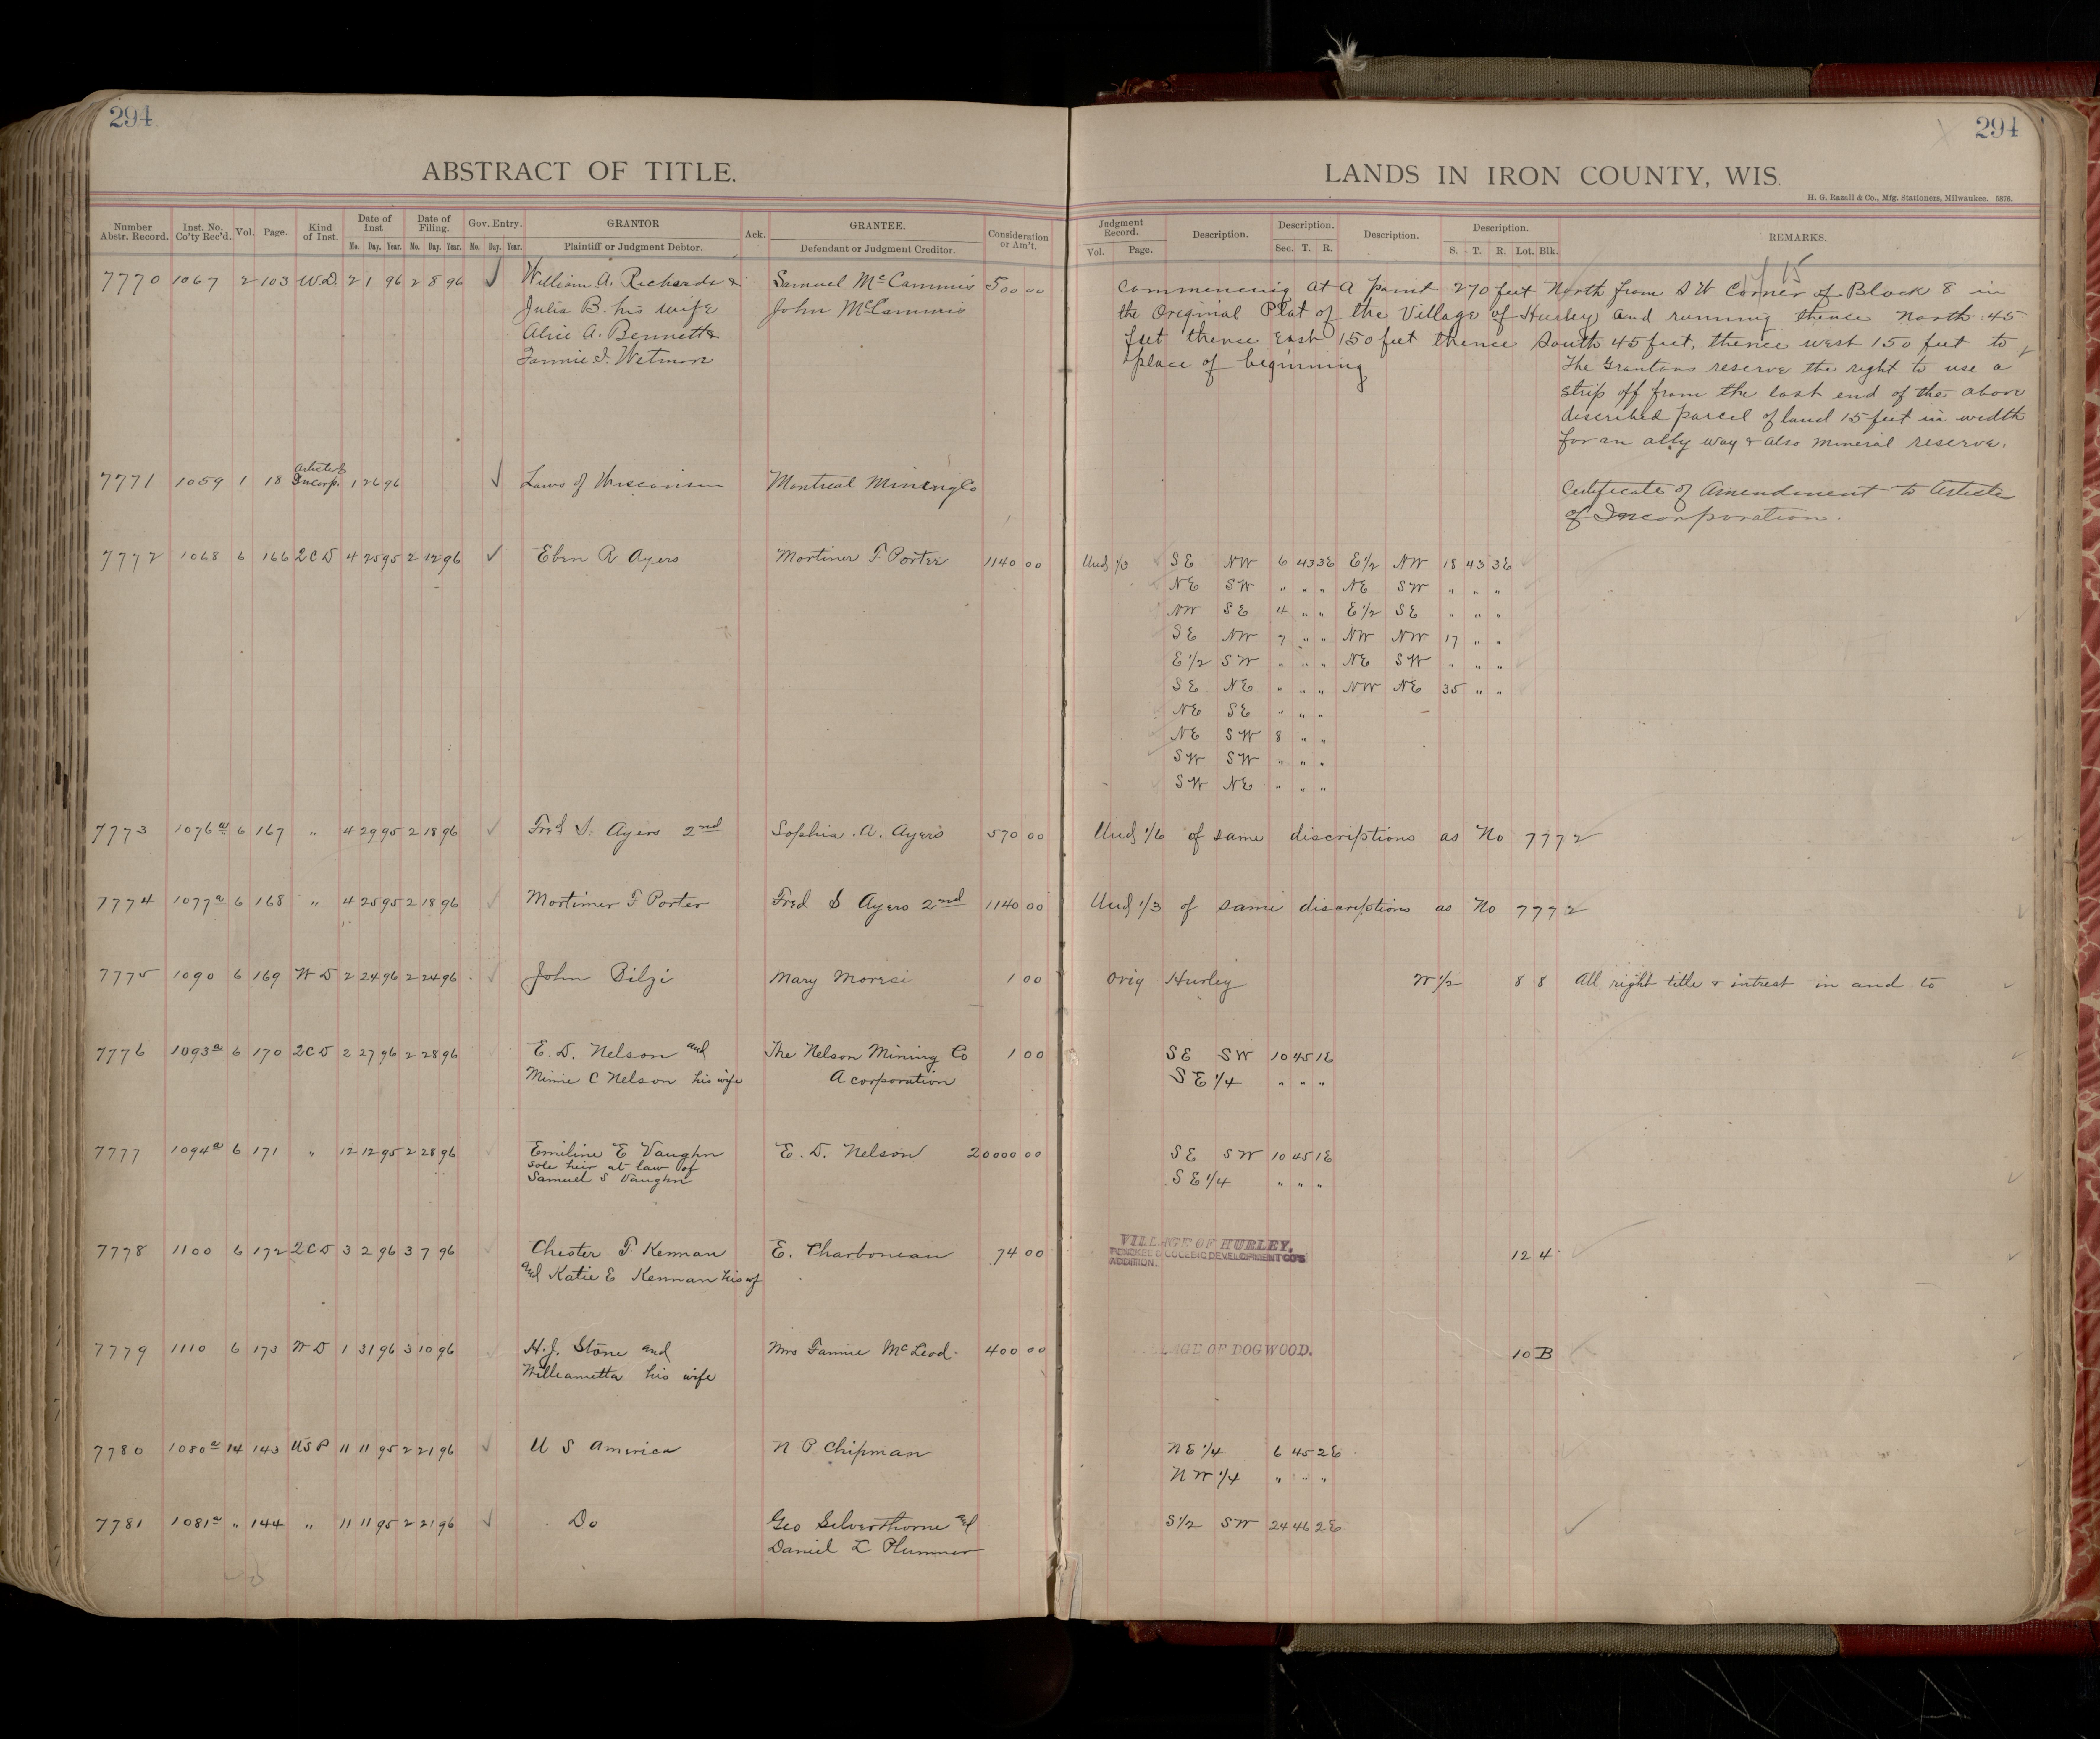 294
294
ABSTRACT OF TITLE.
LANDS IN IRON COUNTY, WIS.
H. G. Razall & Co., Mfg. Stationers, Milwaukee. 5876.
Number Abstr. Record. Inst. No. Co'ty Rec'd. Vol. Page. Kind of Inst. Date of Inst Mo. Day. Year. Date of Filing. Mo. Day. Year. Gov. Entry. Mo. Day. Year. GRANTOR Plaintiff or Judgment Debtor. Ack. GRANTEE. Defendant or Judgment Creditor. Consideration or Am't.
Judgment Record. Vol. Page. Description. Description. Sec. T. R. Description. Description. S. T. R. Lot. Blk. REMARKS.
7770 1067 2 103 W.D. 2 1 96 2 8 96 ✓ William A. Richards & Samuel McCammis 500 00 Commencing at a point 270 feet North from S W Corner of Block 8 in
Julia B. his wife John McCammis the Original Plat of the Village of Hurley and running thence North 45
Alice A. Bennett & feet thence East 150 feet thence South 45 feet, thence west 150 feet to
Fannie I. Wetmore place of beginning
The Grantors reserve the right to use a
strip off from the east end of the above
discribed parcel of land 15 feet in width
for an ally way & also mineral reserve.
7771 1059 1 18 Articles of Incorp. 1 26 96 ✓ Laws of Wisconsin Montreal Mining Co Certificate of Amendment to Article
of Incorporation.
7772 1068 6 166 2CD 4 25 95 2 12 96 ✓ Eben R Ayers Mortimer F Porter 1140 00 Und 1/3 SE NW 6 43 3E E1/2 NW 18 43 3E
NE SW " " " NE SW " " "
NW SE 4 " " E1/2 SE " " "
SE NW 7 " " NW NW 17 " "
E1/2 SW " " " NE SW " " "
SE NE " " " NW NE 35 " "
NE SE " " "
NE SW 8 " "
SW SW " " "
SW NE " " "
7773 1076a 6 167 " 4 29 95 2 18 96 ✓ Fred S. Ayers 2nd Sophia A. Ayers 570 00 Und 1/6 of same discriptions as No 7772
7774 1077a 6 168 " 4 25 95 2 18 96 ✓ Mortimer F Porter Fred S Ayers 2nd 1140 00 Und 1/3 of same discriptions as No 7772
7775 1090 6 169 W D 2 24 96 2 24 96 ✓ John Bilzi Mary Moresi 1 00 Orig Hurley W 1/2 8 8 All right title & intrest in and to
7776 1093a 6 170 2CD 2 27 96 2 28 96 E. D. Nelson and The Nelson Mining Co 1 00 SE SW 10 45 1E
Minnie C Nelson his wife A corporation SE 1/4 " " "
7777 1094a 6 171 " 12 12 95 2 28 96 Emiline E Vaughn E. D. Nelson 20000 00 SE SW 10 45 1E
sole heir at law of SE 1/4 " " "
Samuel S Vaughn
7778 1100 6 172 2CD 3 2 96 3 7 96 Chester T Kennan E. Charboneau 74 00 VILLAGE OF HURLEY, 12 4
PENOKEE & GOGEBIC DEVELOPMENT CO'S
and Katie E Kennan his wf ADDITION.
7779 1110 6 173 W D 1 31 96 3 10 96 H.J. Stone and Mrs Fannie McLeod 400 00 VILLAGE OF DOGWOOD. 10 B
Willeametta his wife
7780 1080a 14 143 USP 11 11 95 2 21 96 ✓ U S America N P Chipman NE 1/4 6 45 2E
NW 1/4 " " "
7781 1081a " 144 " 11 11 95 2 21 96 ✓ Do Geo Silverthorne and S1/2 SW 24 46 2E ✓
Daniel L Plummer